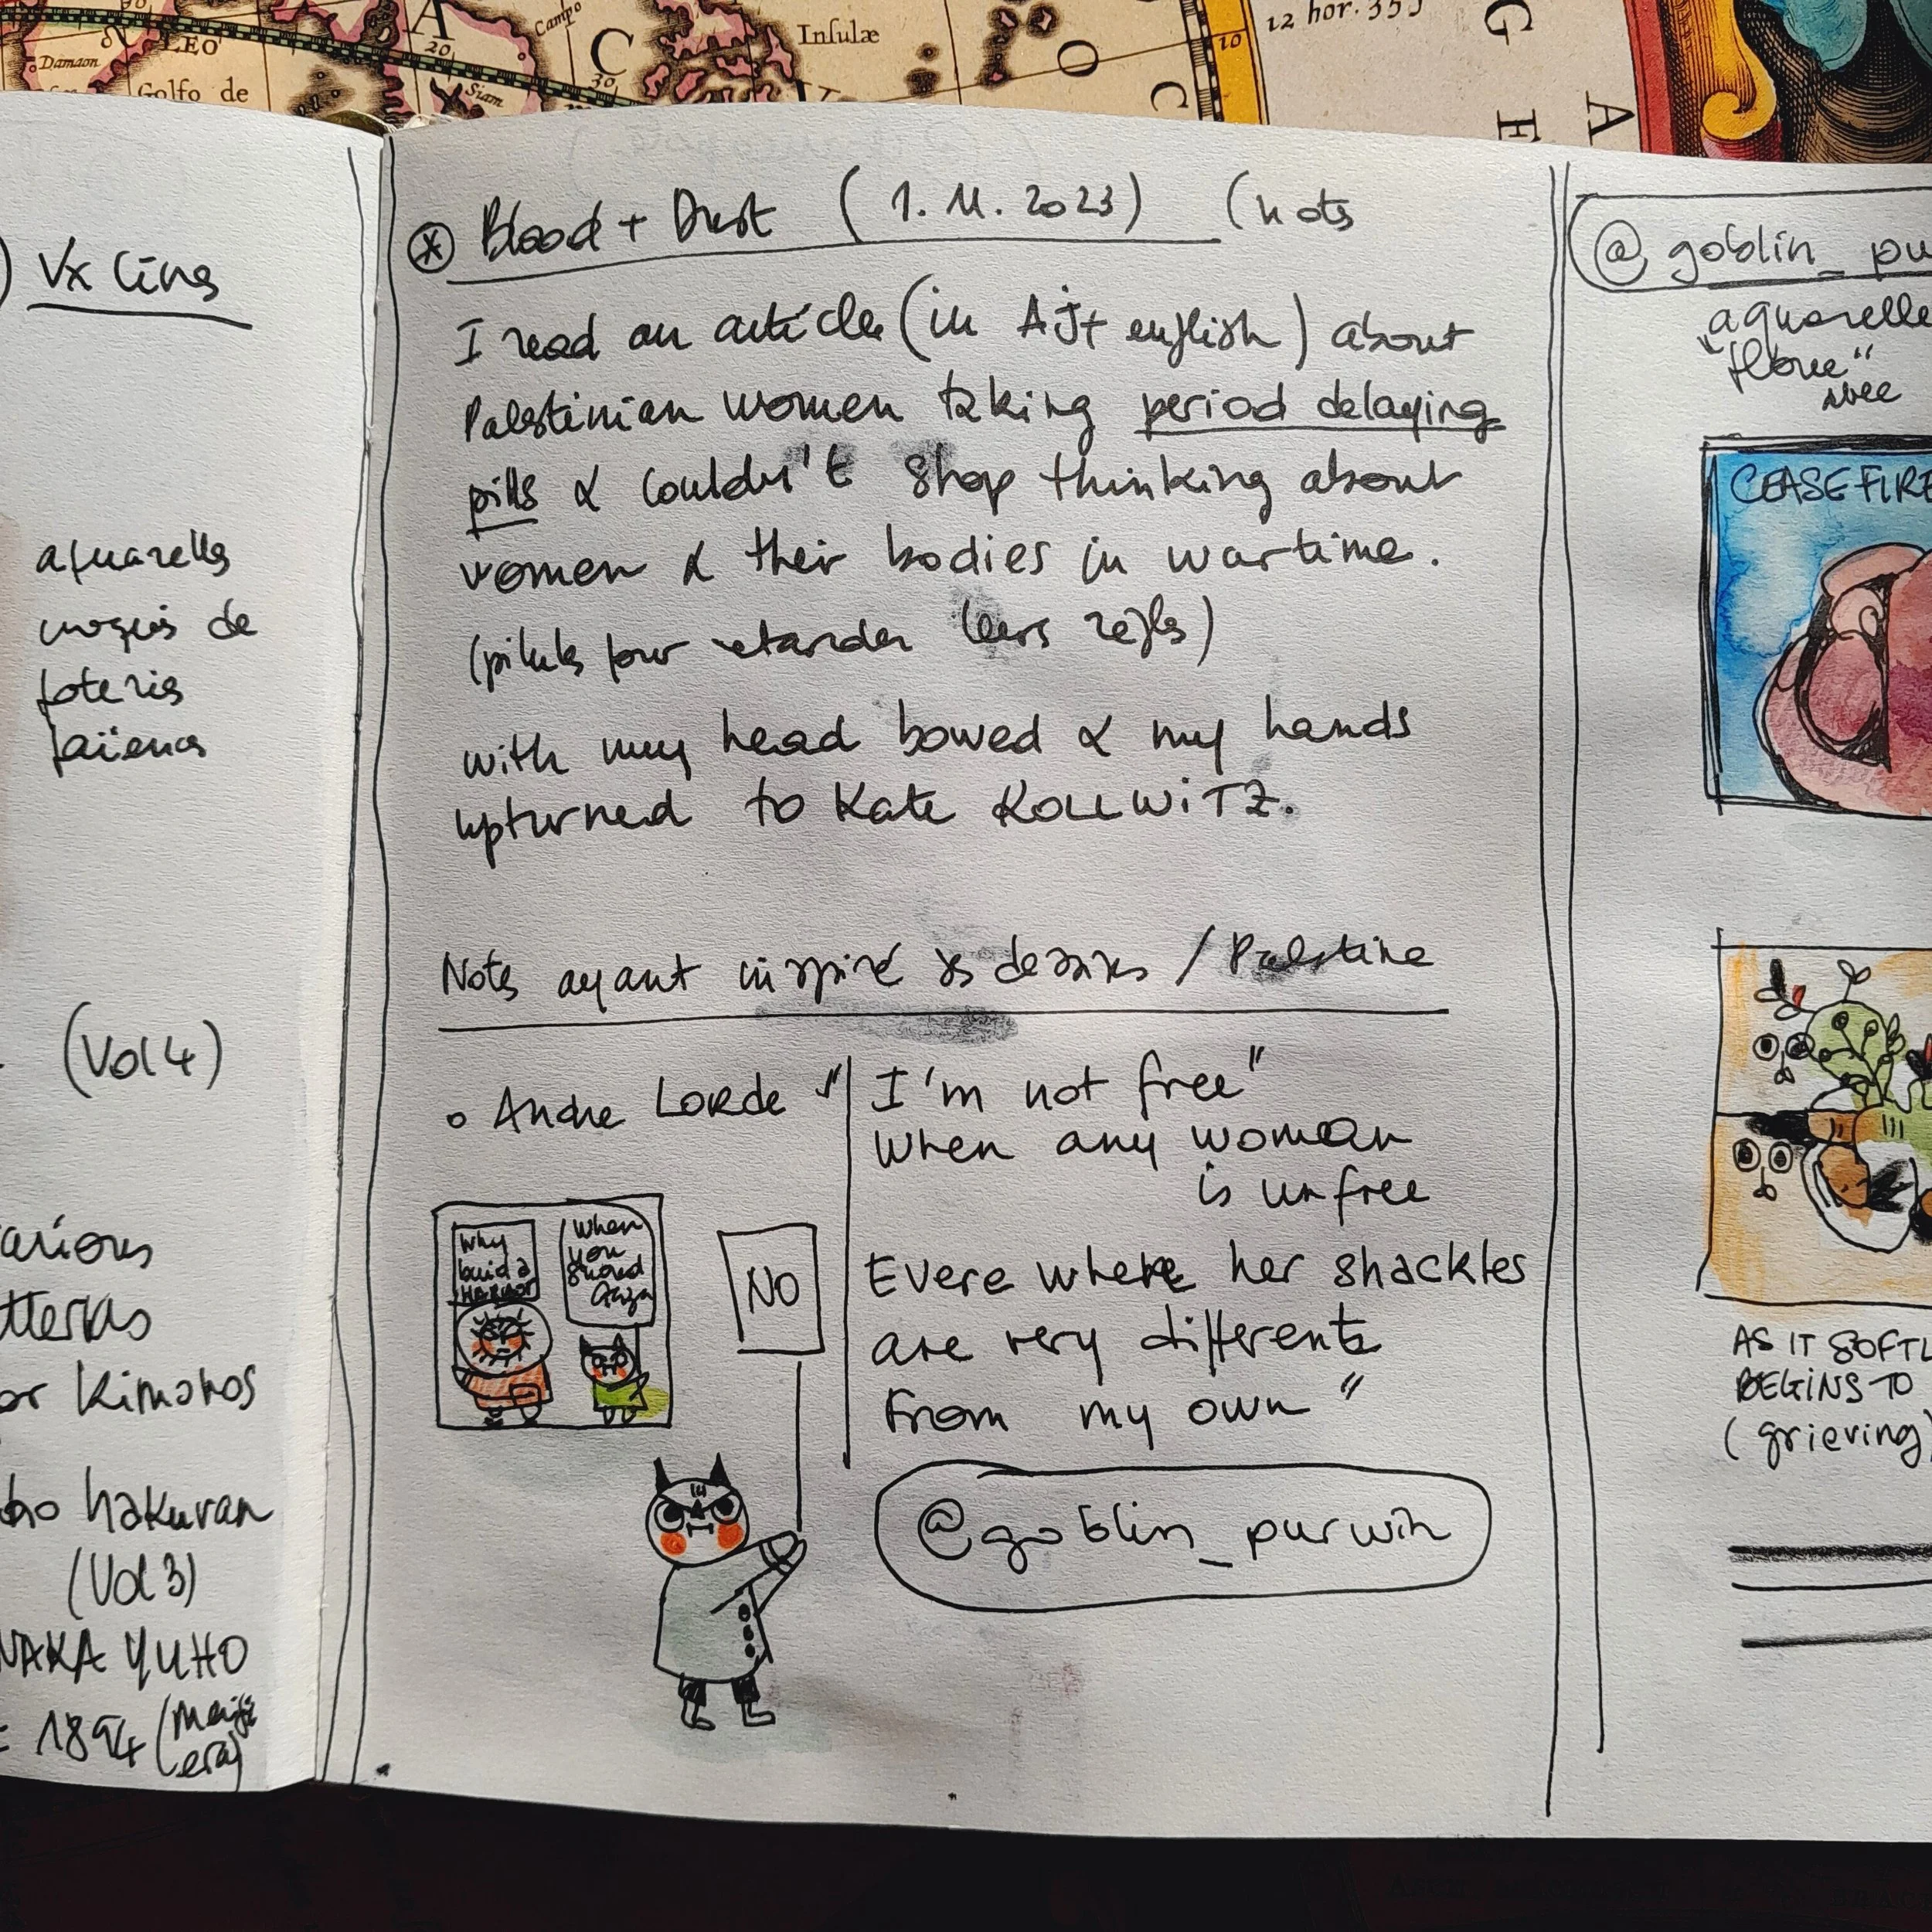 Damaon
LEO
Golfo de
A
20
Campo
Siam
C
30
Insulæ
O
C
10
12 hor. 35
G
E
A
Vx Cing
aquarelles
croquis de
poteries
faïences
(Vol 4)
various
tteries
or Kimonos
ho hakuran
(Vol 3)
NAKA YUHO
= 1894 (Meiji
era)
* Blood + Dust (1.11.2023) (nots
I read an article (in AJ+ english) about
Palestinian women taking period delaying
pills & couldn't stop thinking about
women & their bodies in wartime.
(pilules pour retarder leurs règles)
with my head bowed & my hands
upturned to Kate KOLLWITZ.
Notes ayant inspiré ds dessins / Palestine
Andre LORDE "
I'm not free"
when any woman
is unfree
Evere where her shackles
are very differents
From my own"
Why
build a
HARBOR
When
you
Gaza
NO
@goblin_purwin
@goblin_pu
aquarelle
"floue"
avec
CEASEFIRE
AS IT SOFTL
BEGINS TO
(grieving)